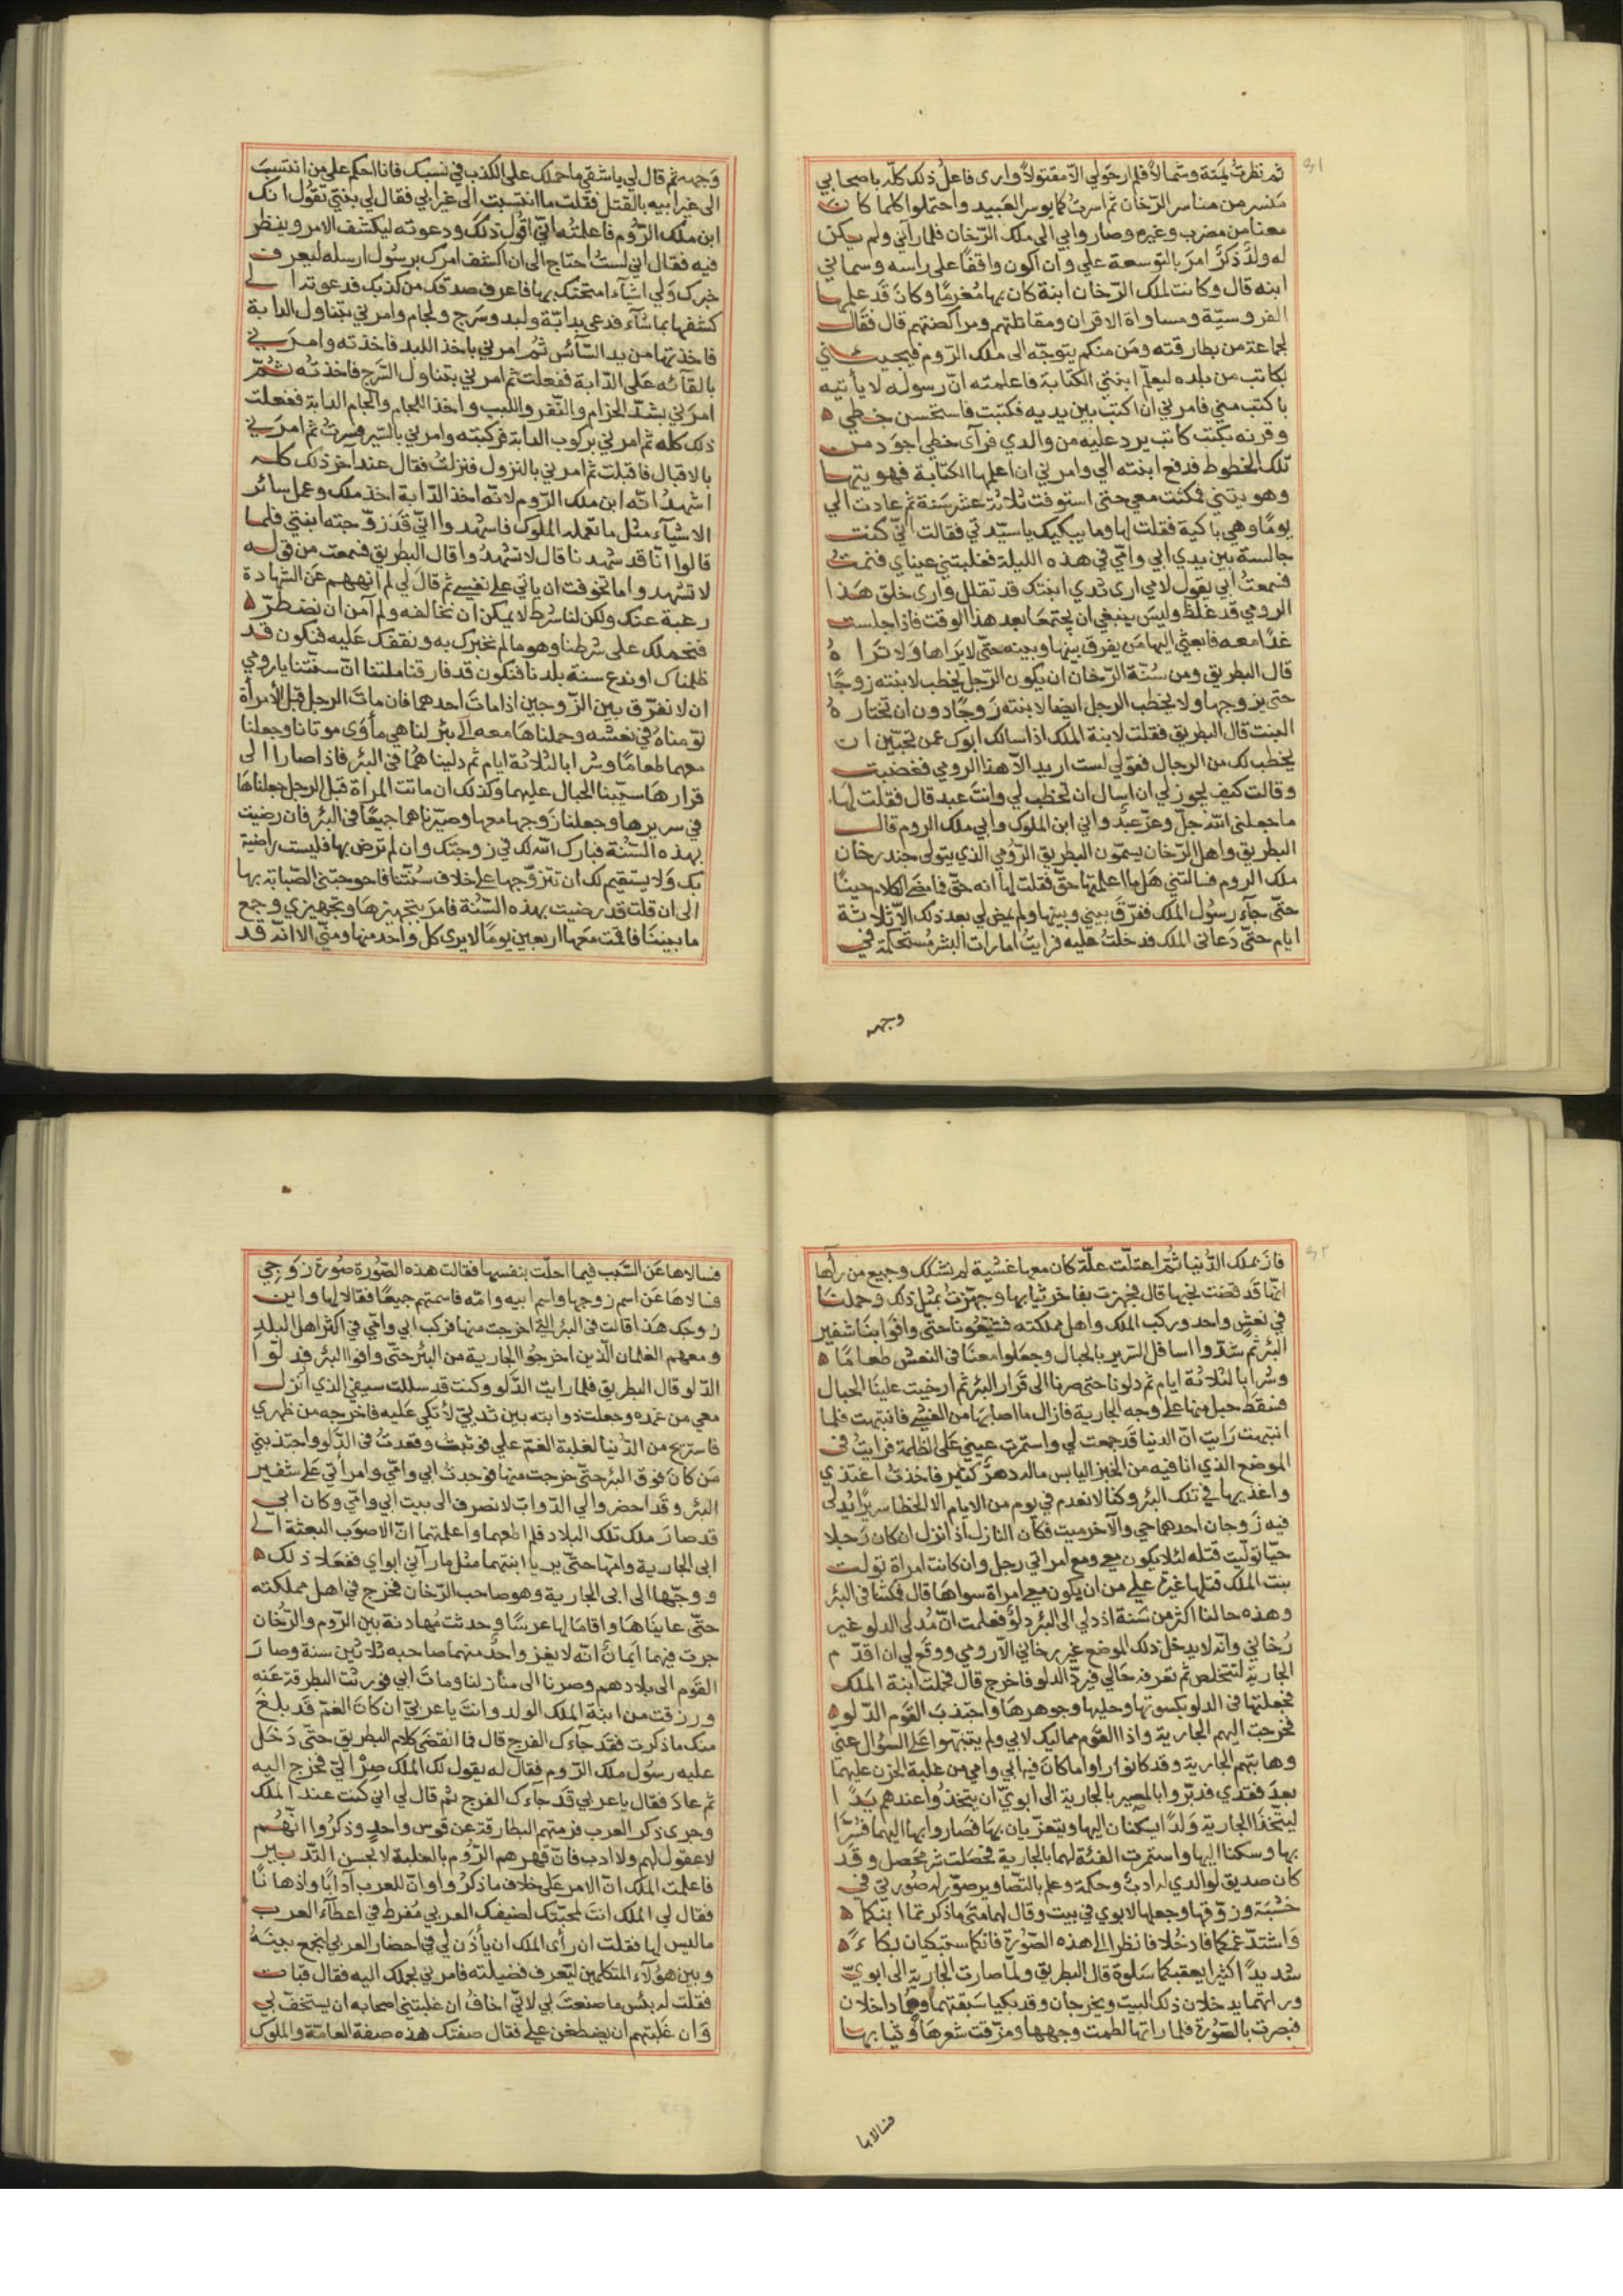 ٣١
ثم نظرت يمنة وشمالا فلم ار حولي الا مقتولا وارى فاعل ذلك كله باصحابي
منسر من مناسر البرجان ثم اسرت كما يوسر العبيد واحتملوا كلما كان
معنا من مضرب وغيره وصاروا بي الى ملك البرجان فلما رآني ولم يكن
له ولد ذكر امر بالتوسعة علي وان اكون واقفا على راسه وسماني
ابنه قال وكانت لملك البرجان ابنة كان بها مغرما وكان قد علمها
الفروسيّة ومساواة الاقران ومقاتلتهم ومراكضتهم قال فقال
لجماعة من بطارقته ومن منكم يتوجّه الى ملك الرّوم فيجيئني
بكاتب من بلده ليعلّم ابنتي الكتابة فاعلمته انّ رسوله لا يأتيه
باكتب مني فامرني ان اكتب بين يديه فكتبت فاستحسن خطي
وقرنه بكتب كانت يرد عليه من والدي فرآى خطي اجود من
تلك الخطوط فدفع ابنته الي وامرني ان اعلمها الكتابة فهويتها
وهويتني فمكثت معي حتى استوفت ثلاثة عشر سنة ثم عادت الي
يوما وهي باكية فقلت لها وما يبكيك يا سيّدتي فقالت انّي كنت
جالسة بين يدي ابي وامّي في هذه الليلة فغلبتني عيناي فنمت
فسمعت ابي يقول لامي ارى ثدي ابنتك قد تفلل وارى خلق هذا
الرومي قد غلظ وليس ينبغي ان يجتمعا بعد هذا الوقت فاذا جلست
غدا معه فابعثي اليها من يفرق بينها وبينه حتّى لا يراها ولا تراه
قال البطريق ومن سنّة البرجان ان يكون الرّجل يخطب لابنته زوجا
حتى يزوجها ولا يخطب الرجل ايضا لابنته زوجا دون ان تختاره
البنت قال البطريق فقلت لابنة الملك اذا سالك ابوك عمن تحبّين ان
يخطب لك من الرجال فقولي لست اريد الّا هذا الرومي فغضبت
وقالت كيف يجوز لي ان اسال ان تخطب لي وانت عبد قال فقلت لها
ما جعلني الله جلّ وعزّ عبد واني ابن الملوك وابي ملك الروم قال
البطريق واهل البرجان يسمّون البطريق الرّومي الذي يتولى حد برجان
ملك الروم فسالتني هل ما اعلمتها حق فقلت لها انه حق فامضى الكلام حينا
حتّى جاء رسول الملك ففرّق بيني وبينها ولم يمض لي بعد ذلك الّا ثلاثة
ايام حتّى دعاني الملك فدخلت عليه فرايت امارات الشر مستحكمة في
وجهه
وجهه ثم قال لي يا شقي ما حملك على الكذب في نسبك فانا احكم على من انتسب
الى غير ابيه بالقتل فقلت ما انتسبت الى غير ابي فقال لي بنتي تقول انك
ابن ملك الرّوم فاعلمته انّي اقول ذلك ودعوته ليكشف الامر وينظر
فيه فقال اني لست احتاج الى ان اكشف امرك برسول ارسله ليعرف
خبرك ولي اشياء امتحنك بها فاعرف صدقك من كذبك فدعوته الى
كشفها بما شاء فدعى بدابّة ولبد وسرج ولجام وامرني بتناول الدابة
فاخذتها من يد السّائس ثم امرني باخذ اللبد فاخذته وامرني
بالقائه على الدّابة ففعلت ثم امرني بتناول السّرج فاخذته ثمّ
امرني بشدّ الحزام والثفر واللبب واخذ اللجام والجام الدابة ففعلت
ذلك كله ثم امرني بركوب الدابة فركبته وامرني بالسّير فسرت ثم امرني
بالاقبال فاقبلت ثم امرني بالنزول فنزلت فقال عند آخر ذلك كله
اشهد انّه ابن ملك الرّوم لانّه اخذ الدّابة اخذ ملك وعمل سائر
الاشياء مثل ما تعمله الملوك فاشهدوا انّي قد زوّجته ابنتي فلما
قالوا انّا قد شهدنا قال لا تشهدوا قال البطريق فسمعت من قوله
لا تشهدوا ما تخوفت ان ياتي على نفسي ثم قال لي لم انههم عن الشهادة
رغبة عنك ولكن لنا شرط لا يمكن ان نخالفه ولم آمن ان نضطرّ
فنحملك على شرطنا وهو ما لم نخبرك به ونقفك عليه فنكون قد
ظلمناك او ندع سنة بلدنا فنكون قد فارقنا ملتنا انّ سنّتنا يا رومي
ان لا نفرّق بين الزّوجين اذا مات احدهما فان مات الرجل قبل الامرأة
نوّمناه في نعشه وحملناها معه الى بئر لنا هي مأوى موتانا وجعلنا
معهما طعاما وشرابا لثلاثة ايام ثم دلينا هما في البئر فاذا صارا الى
قرارها سيّبنا الحبال عليهما وكذلك ان ماتت المراة قبل الرجل جعلناها
في سريرها وجعلنا زوجها معها وصيّرناهما جميعا في البئر فان رضيت
بهذه السّنة فبارك الله لك في زوجتك وان لم ترض بها فليست راضية
بك ولا يستقيم لك ان تتزوّجها على خلاف سنّتنا فاحوجتني الصّبابة بها
الى ان قلت قد رضيت بهذه السّنة فامر بتجهيزها وتجهيزي وجمع
ما بيننا فاقمت معها اربعين يوما لا يرى كل واحد منها ومنّي الا انّه قد
٣٢
فاز بملك الدّنيا ثم اعتلّت علّة كان معها غشية لم نشكك وجميع من رآها
انّها قد قضت نحبها قال فجهزت بفاخر ثيابها وجهّزت بمثل ذلك وحملنا
في نعش واحد وركب الملك واهل مملكته فشيّعونا حتّى وافوا بنا شفير
البئر ثم شدّوا اسافل السّرير بالحبال وجعلوا معنا في النعش طعاما
وشرابا لثلاثة ايام ثم دلونا حتى صرنا الى قرار البئر ثم ارخيت علينا الحبال
فسقط حبل منها على وجه الجارية فازال ما اصابها من الغشى فانتبهت فلما
انتبهت رايت انّ الدنيا قد جمعت لي واستمرت عيني على الظلمة فرايت في
الموضع الذي انا فيه من الخبز اليابس ماله دهر كثير فاخذت اغتذي
واغذيها في تلك البئر وكنا لا نعدم في يوم من الايام الا الخطا سريرا يدلى
فيه زوجان احدهما حي والآخر ميت فكان النازل اذا نزل ان كان رجلا
حيّا توليت قتله لئلا يكون معي ومع امراتي رجل وان كانت امراة تولت
بنت الملك قتلها غيرة علي من ان يكون معي امراة سواها قال فمكثنا في البئر
وهذه حالنا اكثر من سنة اذ دلي الى البئر دلو فعلمت انّ مدلى الدلو غير
برجاني وانّه لا يدخل ذلك الموضع غير برجاني الّا رومي ووقع لي ان اقدّم
الجارية لتتخلص ثم تعرفه حالي فيردّ الدلو فاخرج قال فحملت ابنة الملك
فجعلتها في الدلو بكسوتها وحليها وجوهرها واجتذب القوم الدّلو
فخرجت اليهم الجارية واذا القوم مماليك لابي ولم يتنبّهوا على السّؤال عنّي
وهابتهم الجارية وقد كانوا راوا ما كان فيه ابي وامي من غلبة الحزن عليهما
بعد فقدي فدبّروا بالمصير بالجارية الى ابويّ ان يتخذوا عندهم يدا
ليتّخذا الجارية ولدا يسكنان اليها ويتعزّيان بها فصاروا بها اليهما فسرّا
بها وسكنا اليها واستمرت الفئة لهما بالجارية فحصلت شر محصل وقد
كان صديق لوالدي له ادب وحكمة وعلم بالتّصاوير صوّر له صورتي في
خشبة وزوّقها وجعلها لابوي في بيت وقال لهما متى ما ذكرتما ابنكما
واشتدّ غمكما فادخلا فانظرا الى هذه الصّورة فانّكما ستبكيان بكاء
شديدا كثيرا يعقبكما سلوة قال البطريق ولمّا صارت الجارية الى ابويّ
وراتهما يدخلان ذلك البيت ويخرجان وقد بكيا سبقتهما وهما داخلان
فبصرت بالصّورة فلما راتها لطمت وجهها ومزّقت شعرها وثيابها
فسالاها
فسالاها عن السّبب فيما احلّت بنفسها فقالت هذه الصّورة صورة زوجي
فسالاها عن اسم زوجها واسم ابيه وامّه فاسمتهم جميعا فقالا لها واين
زوجك هذا قالت في البئر التي اخرجت منها فركب ابي وامّي في اكثر اهل البلد
ومعهم الغلمان الّذين اخرجوا الجارية من البئر حتّى وافوا البئر فدلوا
الدّلو قال البطريق فلما رايت الدّلو وكنت قد سللت سيفي الذي انزل
معي من غمده وجعلت ذوابته بين ثدييّ لأتكي عليه فاخرجه من ظهري
فاستريح من الدّنيا لغلبة الغمّ علي فوثبت وقعدت في الدّلو واجتذبني
من كان فوق البئر حتّى خرجت منها فوجدت ابي وامّي وامرأتي على شفير
البئر وقد احضروا لي الدّوابّ لانصرف الى بيت ابي وامّي وكان ابي
قد صار ملك تلك البلاد فلم اطعهما واعلمتهما انّ الاصوب البعثة الى
ابي الجارية وامّها حتّى يريا ابنتهما مثل ما رآني ابواي ففعلا ذلك
ووجّها الى ابي الجارية وهو صاحب البرجان فخرج في اهل مملكته
حتّى عايناها واقاما لها عرسا وحدثت مهادنة بين الرّوم والبرجان
جرت فيهما ايمان انّه لا يغزو احد منهما صاحبه ثلاثين سنة وصار
القوم الى بلادهم وصرنا الى منازلنا ومات ابي فورثت البطرقة عنه
ورزقت من ابنة الملك الولد وانت يا عربي ان كان الغمّ قد بلغ
منك ما ذكرت فقد جاءك الفرج قال فما انقضى كلام البطريق حتّى دخل
عليه رسول ملك الرّوم فقال له يقول لك الملك صر اليّ فخرج اليه
ثم عاد فقال يا عربي قد جاءك الفرج ثم قال لي اني كنت عند الملك
وجرى ذكر العرب فرمتهم البطارقة عن قوس واحد وذكروا انّهم
لا عقول لهم ولا ادب فانّ قهرهم الرّوم بالغلبة لا بحسن التّدبير
فاعلمت الملك انّ الامر على خلاف ما ذكروا وانّ للعرب آدابا واذهانا
فقال لي الملك انت لمحبّتك لضيفك العربي مفرط في اعطاء العرب
ما ليس لها فقلت ان رأى الملك ان يأذن لي في احضار العربي ليجمع بينه
وبين هؤلاء المتكلمين ليعرف فضيلته فامرني بحملك اليه فقال قباث
فقلت له بئس ما صنعت بي لانّي اخاف ان غلبتني اصحابه ان يستخفّ بي
وان غلبتهم ان يضطغن علي فقال صفتك هذه صفة العامّة والملوك